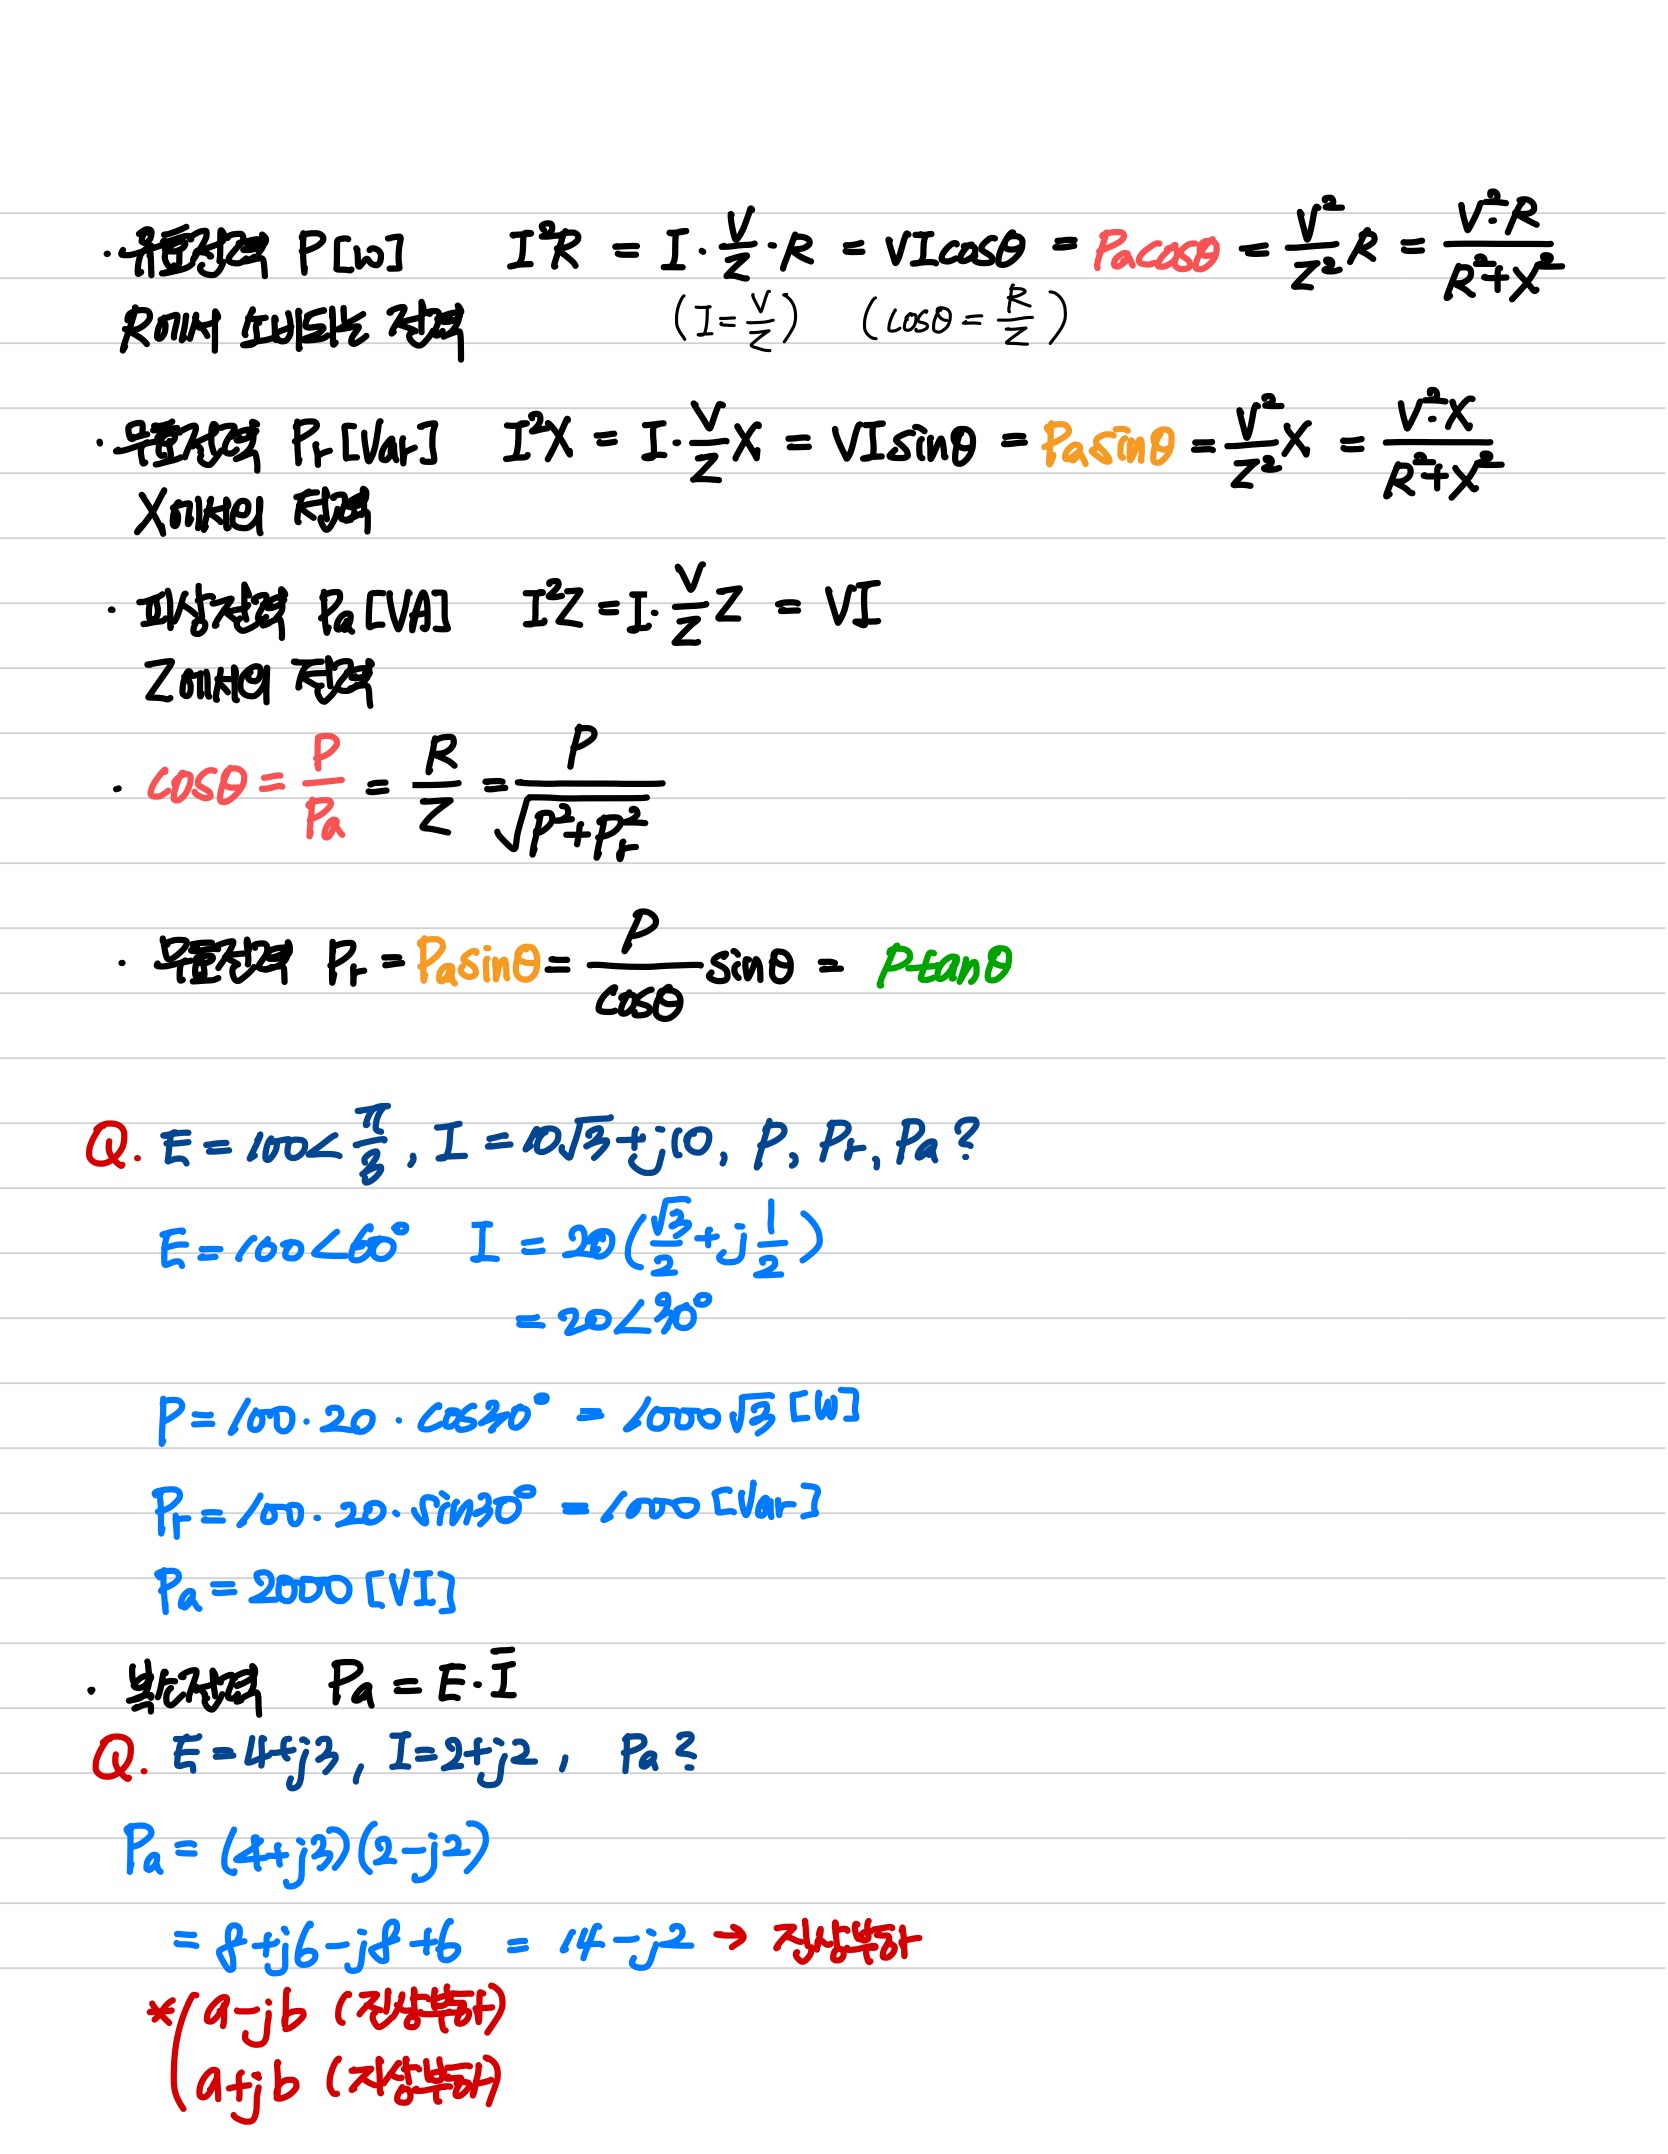 · 유효전력 P[W] I²R = I·V/Z·R = VIcosθ = Pacosθ = V²/Z² R = V²·R/(R²+X²)
R에서 소비되는 전력 (I=V/Z) (cosθ=R/Z)
· 무효전력 Pr[Var] I²X = I·V/Z X = VIsinθ = Pasinθ = V²/Z² X = V²·X/(R²+X²)
X에서의 전력
· 피상전력 Pa[VA] I²Z = I·V/Z Z = VI
Z에서의 전력
· cosθ = P/Pa = R/Z = P/√(P²+Pr²)
· 무효전력 Pr = Pasinθ = P/cosθ sinθ = Ptanθ
Q. E = 100∠π/3, I = 10√3+j10, P, Pr, Pa?
E = 100∠60° I = 20(√3/2+j1/2)
= 20∠30°
P = 100·20·cos30° = 1000√3 [W]
Pr = 100·20·sin30° = 1000 [Var]
Pa = 2000 [VI]
· 복소전력 Pa = E·Ī
Q. E = 4+j3, I = 2+j2, Pa?
Pa = (4+j3)(2-j2)
= 8+j6-j8+6 = 14-j2 → 진상부하
* ( a-jb (진상부하)
a+jb (지상부하)